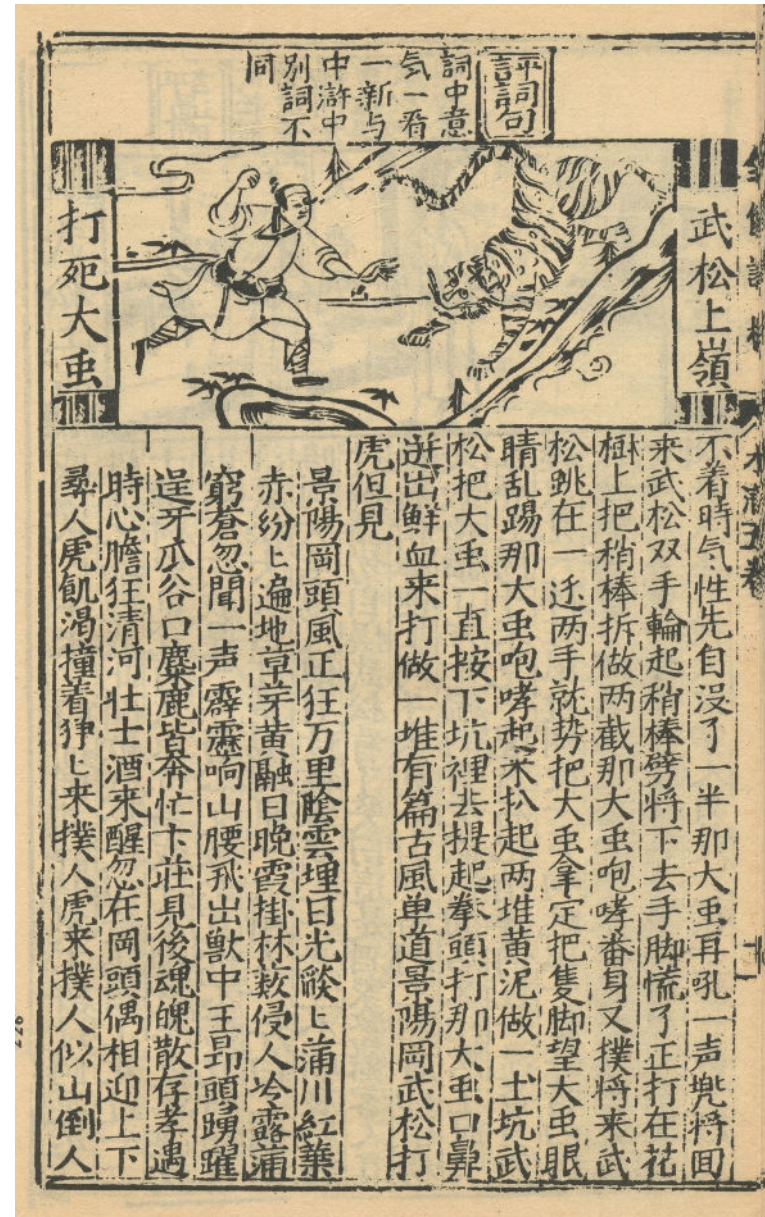 評詞句
詞中意
気一看
一新与
中滸中
別詞不
同
武松上嶺
打死大虫
不着時気性先自没了一半那大虫再吼一声兠将囬
来武松双手輪起稍棒劈将下去手脚慌了正打在花
樹上把稍棒拆做两截那大虫咆哮番身又撲将来武
松跳在一边两手就势把大虫拿定把隻脚望大虫眼
睛乱踢那大虫咆哮起来扒起两堆黄泥做一土坑武
松把大虫一直按下坑裡去提起拳頭打那大虫口鼻
迸出鮮血来打做一堆有篇古風单道景陽岡武松打
虎但見
景陽岡頭風正狂万里陰雲埋日光燄〻蒲川紅葉
赤紛〻遍地草芽黄融日晚霞掛林薮侵人冷露蒲
窮蒼忽聞一声霹靂响山腰飛出獣中王昻頭踴躍
逞牙爪谷口麋鹿皆奔忙卞莊見後魂魄散存孝遇
時心膽狂清河壮士酒来醒忽在岡頭偶相迎上下
尋人虎飢渴撞着狰〻来撲人虎来撲人似山倒人
水滸五巻